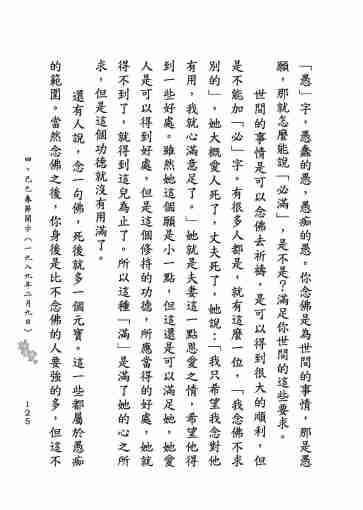 「愚」字，愚蠢的愚，愚痴的愚。你念佛是為世間的事情，那是愚
願，那就怎麼能說「必滿」，是不是？滿足你世間的這些要求。
世間的事情是可以念佛去祈禱，是可以得到很大的順利，但
是不能加「必」字。有很多人都是，就有這麼一位，「我念佛不求
別的」，她大概愛人死了，丈夫死了，她說：「我只希望我念對他
有用，我就心滿意足了。」她就是夫妻這一點恩愛之情，希望他得
到一些好處。雖然她這個願是小一點，但這還是可以滿足她，她愛
人是可以得到好處。但是這個修持的功德，所應當得的好處，她就
得不到了，就得到這兒為止了。所以這種「滿」是滿了她的心之所
求，但是這個功德就沒有用滿了。
還有人說，念一句佛，死後就多一個元寶。這一些都屬於愚痴
的範圍。當然念佛之後，你身後是比不念佛的人要強的多，但這不
四、己巳春節開示（一九八九年二月九日）
125